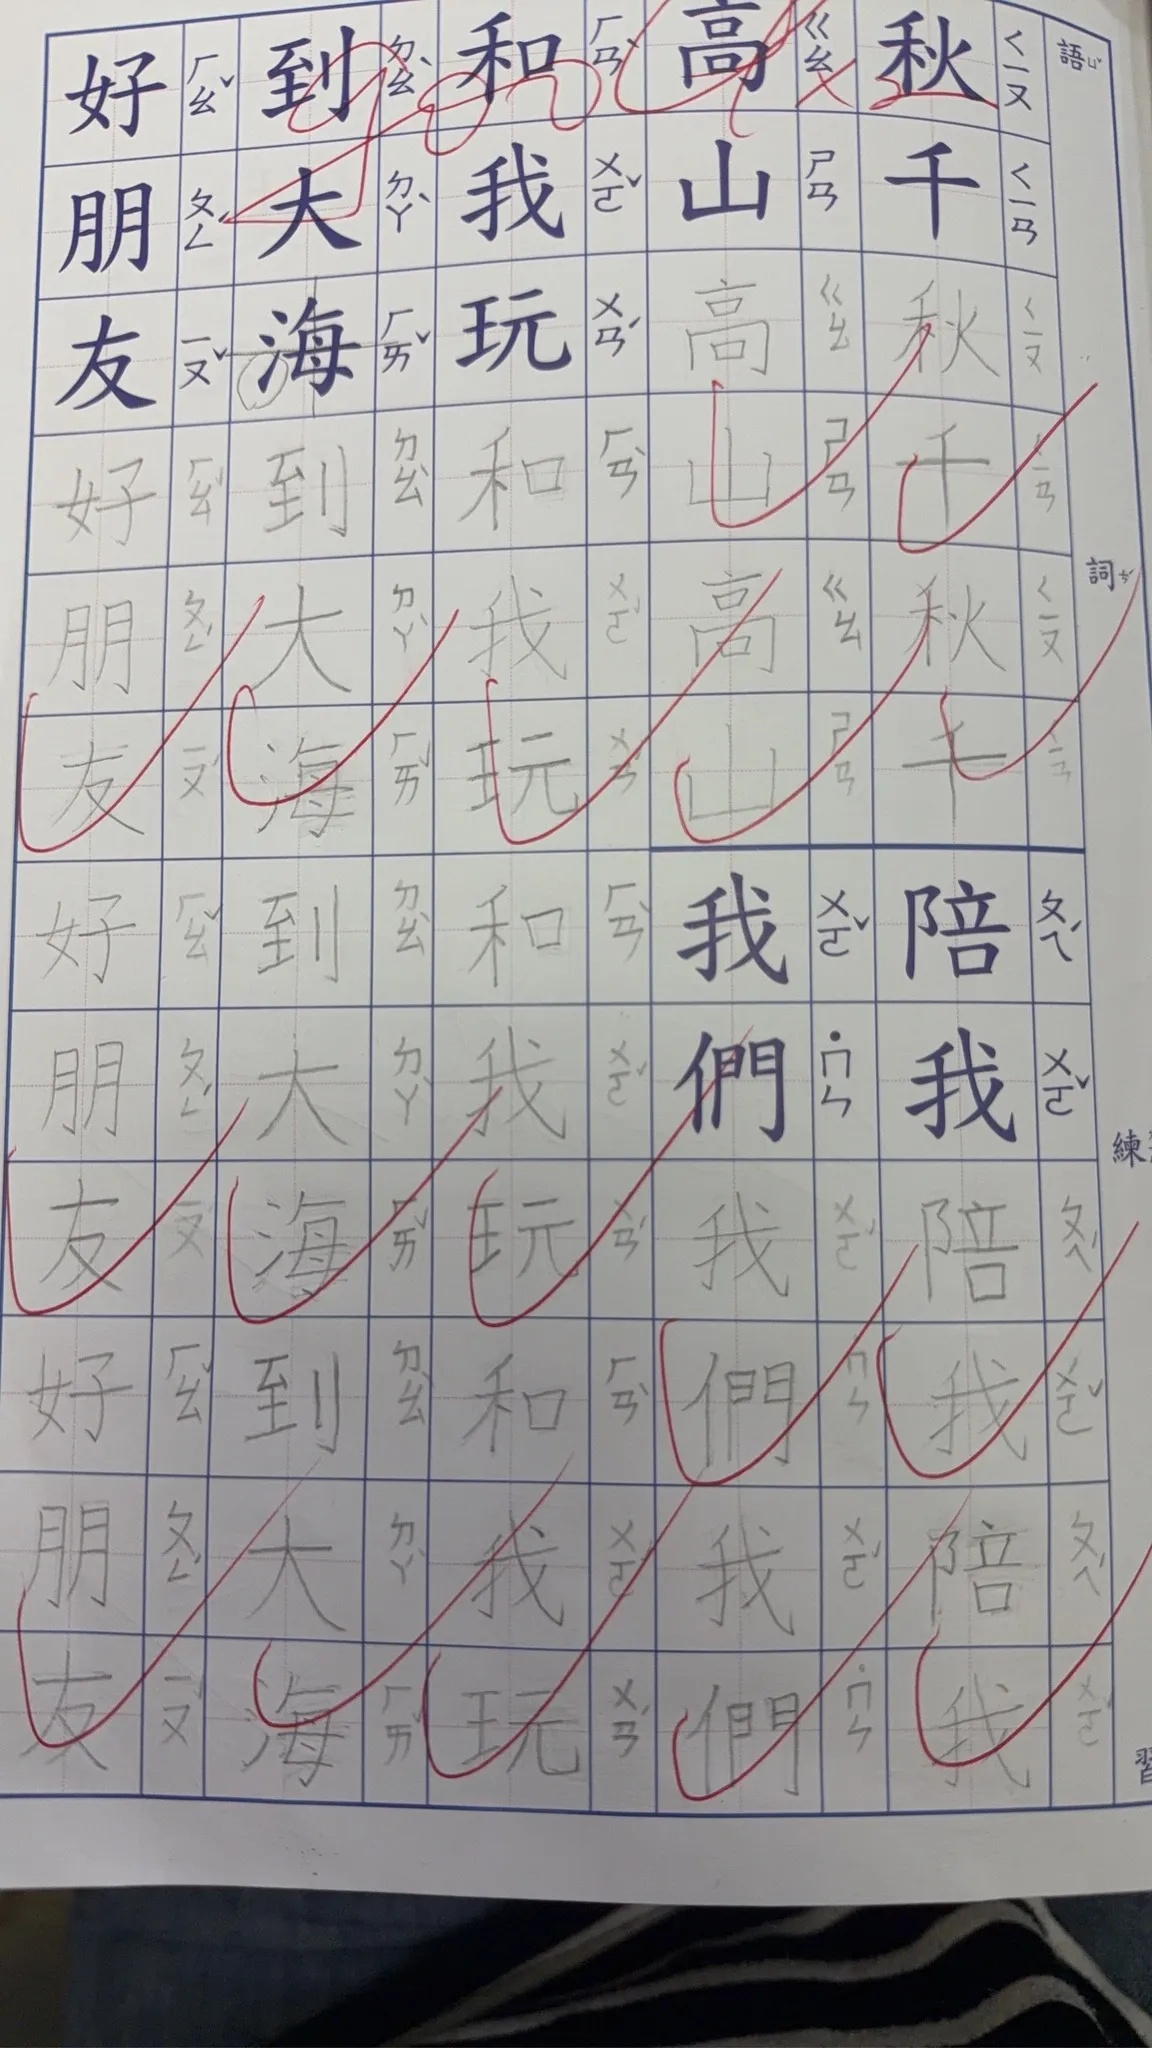 語ㄩˇ詞ㄘˊ練習
秋ㄑㄧㄡ千ㄑㄧㄢ
秋ㄑㄧㄡ千ㄧㄢ
秋ㄑㄧㄡ千ㄧㄢ
陪ㄆㄟˊ我ㄨㄛˇ
陪ㄆㄟˊ我ㄨㄛˇ
陪ㄆㄟˊ我ㄨㄛˇ
高ㄍㄠ山ㄕㄢ
高ㄍㄠ山ㄕㄢ
高ㄍㄠ山ㄕㄢ
我ㄨㄛˇ們˙ㄇㄣ
我ㄨㄛˇ們ㄇㄣ
我ㄨㄛˇ們˙ㄇㄣ
和ㄏㄢˋ我ㄨㄛˇ玩ㄨㄢˊ
和ㄏㄢˋ我ㄨㄛˇ玩ㄨㄢˊ
和ㄏㄢˋ我ㄨㄛˇ玩ㄨㄢˊ
和ㄏㄢˋ我ㄨㄛˇ玩ㄨㄢˊ
到ㄉㄠˋ大ㄉㄚˋ海ㄏㄞˇ
到ㄉㄠˋ大ㄉㄚˋ海ㄏㄞˇ
到ㄉㄠˋ大ㄉㄚˋ海ㄏㄞˇ
到ㄉㄠˋ大ㄉㄚˋ海ㄏㄞˇ
好ㄏㄠˇ朋ㄆㄥˊ友ㄧㄡˇ
好ㄏㄠˇ朋ㄆㄥˊ友ㄧㄡˇ
好ㄏㄠˇ朋ㄆㄥˊ友ㄧㄡˇ
好ㄏㄠˇ朋ㄆㄥˊ友ㄧㄡˇ